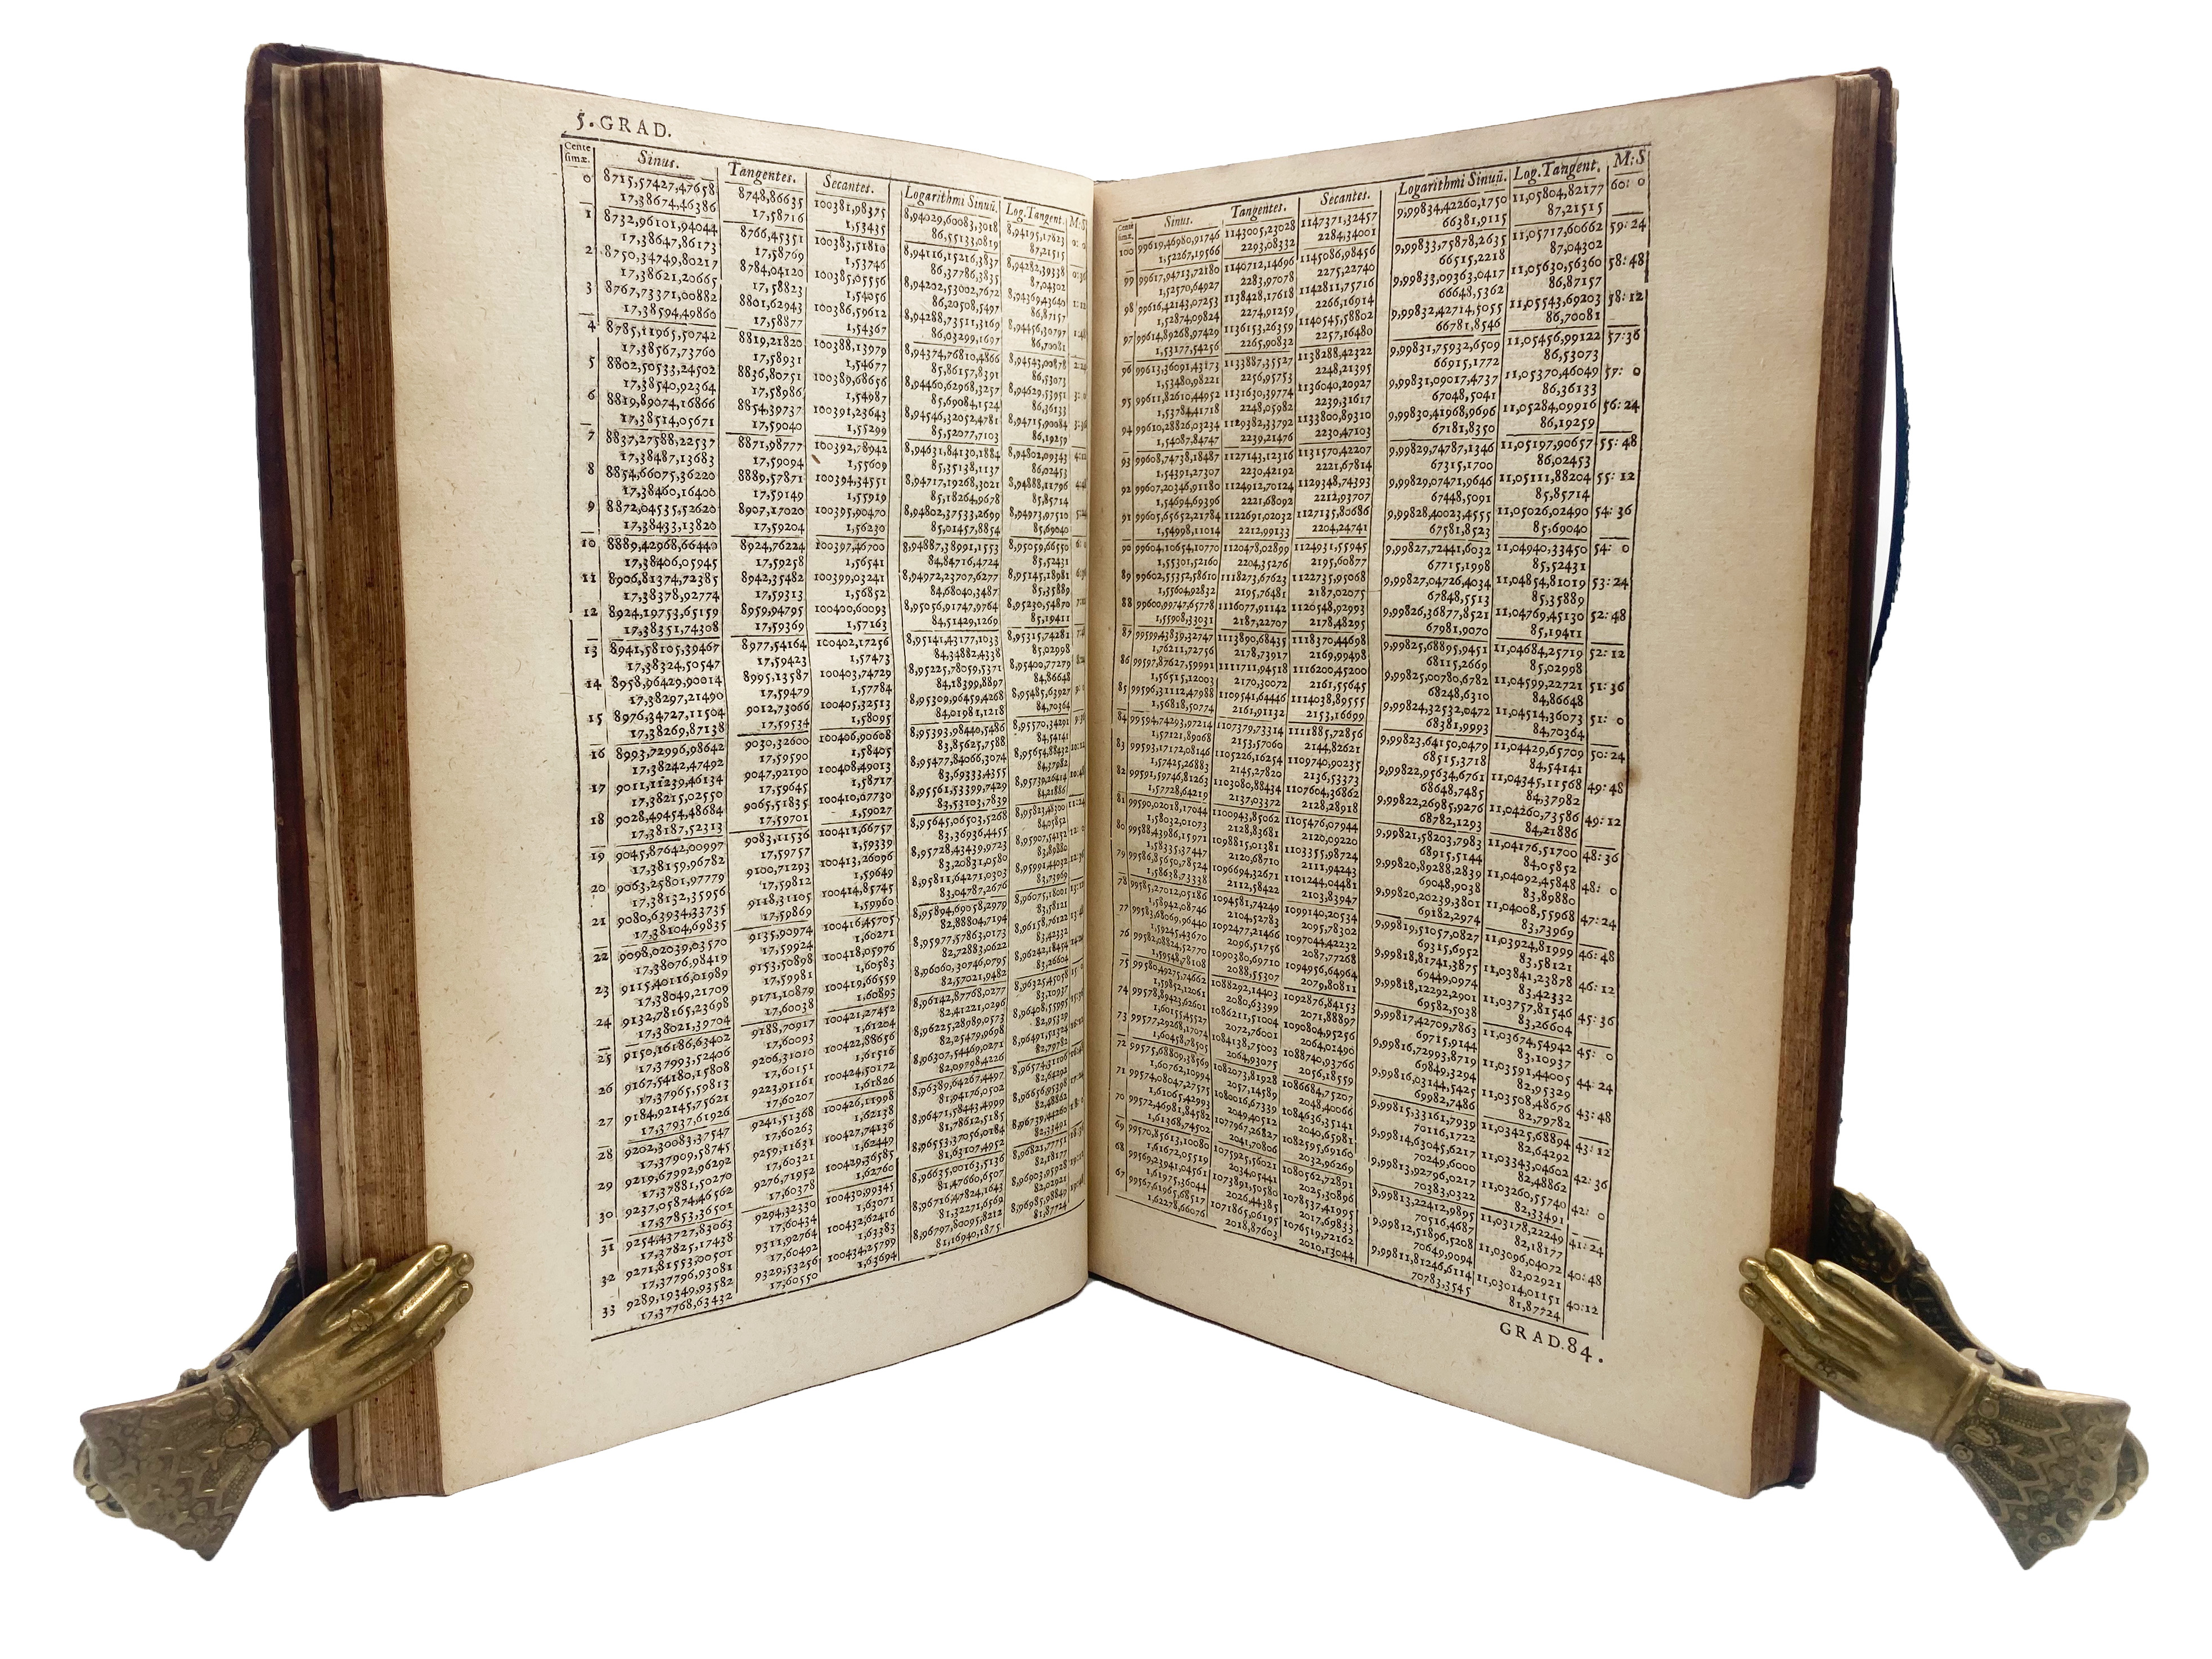 5. GRAD.
Cente simæ. Sinus. Tangentes. Secantes. Logarithmi Sinuū. Log. Tangent. M:S
0 8715,57427,47658 8748,86635 100381,98375 8,94029,60083,3018 8,94195,17823 0: 0
17,38674,46386 17,58716 1,53435 86,55133,0819 87,21515
1 8732,96101,94044 8766,45351 100383,51810 8,94116,15216,3837 8,94282,39338
17,38647,86173 17,58769 1,53746 86,37786,3835 87,04302
2 8750,34749,80217 8784,04120 100385,05556 8,94202,53002,7672 8,94369,43640
17,38621,20665 17,58823 1,54056 86,20508,5497 86,87157
3 8767,73371,00882 8801,62943 100386,59612 8,94288,73511,3169 8,94456,30797
17,38594,49860 17,58877 1,54367 86,03299,1697 86,70081
4 8785,11965,50742 8819,21820 100388,13979 8,94374,76810,4866 8,94543,00878
17,38567,73760 17,58931 1,54677 85,86157,8391 86,53073
5 8802,50533,24502 8836,80751 100389,68656 8,94460,62968,3257 8,94629,53951
17,38540,92364 17,58986 1,54987 85,69084,1524 86,36133
6 8819,89074,16866 8854,39737 100391,23643 8,94546,32052,4781 8,94715,90084
17,38514,05671 17,59040 1,55299 85,52077,7103 86,19259
7 8837,27588,22537 8871,98777 100392,78942 8,94631,84130,1884 8,94802,09343
17,38487,13683 17,59094 1,55609 85,35138,1137 86,02453
8 8854,66075,36220 8889,57871 100394,34551 8,94717,19268,3021 8,94888,11796
17,38460,16400 17,59149 1,55919 85,18264,9678 85,85714
9 8872,04535,52620 8907,17020 100395,90470 8,94802,37533,2699 8,94973,97510
17,38433,13820 17,59204 1,56230 85,01457,8854 85,69040
10 8889,42968,66440 8924,76224 100397,46700 8,94887,38991,1553 8,95059,66550
17,38406,05945 17,59258 1,56541 84,84716,4724 85,52431
11 8906,81374,72385 8942,35482 100399,03241 8,94972,23707,6277 8,95145,18981
17,38378,92774 17,59313 1,56852 84,68040,3487 85,35889
12 8924,19753,65159 8959,94795 100400,60093 8,95056,91747,9764 8,95230,54870
17,38351,74308 17,59369 1,57163 84,51429,1269 85,19411
13 8941,58105,39467 8977,54164 100402,17256 8,95141,43177,1033 8,95315,74281
17,38324,50547 17,59423 1,57473 84,34882,4338 85,02998
14 8958,96429,90014 8995,13587 100403,74729 8,95225,78059,5371 8,95400,77279
17,38297,21490 17,59479 1,57784 84,18399,8897 84,86648
15 8976,34727,11504 9012,73066 100405,32513 8,95309,96459,4268 8,95485,63927
17,38269,87138 17,59534 1,58095 84,01981,1218 84,70364
16 8993,72996,98642 9030,32600 100406,90608 8,95393,98440,5486 8,95570,34291
17,38242,47492 17,59590 1,58405 83,85625,7588 84,54141
17 9011,11239,46134 9047,92190 100408,49013 8,95477,84066,3074 8,95654,88432
17,38215,02550 17,59645 1,58717 83,69333,4355 84,37982
18 9028,49454,48684 9065,51835 100410,07730 8,95561,53399,7429 8,95739,26414
17,38187,52313 17,59701 1,59027 83,53103,7839 84,21886
19 9045,87642,00997 9083,11536 100411,66757 8,95645,06503,5268 8,95823,48300
17,38159,96782 17,59757 1,59339 83,36936,4455 84,05852
20 9063,25801,97779 9100,71293 100413,26096 8,95728,43439,9723 8,95907,54152
17,38132,35956 17,59812 1,59649 83,20831,0580 83,89880
21 9080,63934,33735 9118,31105 100414,85745 8,95811,64271,0303 8,95991,44032
17,38104,69835 17,59869 1,59960 83,04787,2676 83,73969
22 9098,02039,03570 9135,90974 100416,45705 8,95894,69058,2979 8,96075,18001
17,38076,98419 17,59924 1,60271 82,88804,7194 83,58121
23 9115,40116,01989 9153,50898 100418,05976 8,95977,57863,0173 8,96158,76122
17,38049,21709 17,59981 1,60583 82,72883,0622 83,42332
24 9132,78165,23698 9171,10879 100419,66559 8,96060,30746,0795 8,96242,18454
17,38021,39704 17,60038 1,60893 82,57021,9482 83,26604
25 9150,16186,63402 9188,70917 100421,27452 8,96142,87768,0277 8,96325,45058
17,37993,52406 17,60093 1,61204 82,41221,0296 83,10937
26 9167,54180,15808 9206,31010 100422,88656 8,96225,28989,0573 8,96408,55995
17,37965,59813 17,60151 1,61516 82,25479,9698 82,95329
27 9184,92145,75621 9223,91161 100424,50172 8,96307,54469,0271 8,96491,51324
17,37937,61926 17,60207 1,61826 82,09798,4226 82,79782
28 9202,30083,37547 9241,51368 100426,11998 8,96389,64267,4497 8,96574,31106
17,37909,58745 17,60263 1,62138 81,94176,0502 82,64292
29 9219,67992,96292 9259,11631 100427,74136 8,96471,58443,4999 8,96656,95398
17,37881,50270 17,60321 1,62449 81,78612,5185 82,48862
30 9237,05874,46562 9276,71952 100429,36585 8,96553,37056,0184 8,96739,44260
17,37853,36501 17,60378 1,62760 81,63107,4952 82,33491
31 9254,43727,83063 9294,32330 100430,99345 8,96635,00163,5136 8,96821,77751
17,37825,17438 17,60434 1,63071 81,47660,6507 82,18177
32 9271,81553,00501 9311,92764 100432,62416 8,96716,47824,1643 8,96903,95928
17,37796,93081 17,60492 1,63383 81,32271,6569 82,02921
33 9289,19349,93582 9329,53256 100434,25799 8,96797,80095,8212 8,96985,98849
17,37768,63432 17,60550 1,63694 81,16940,1875 81,87724
Cente simæ. Sinus. Tangentes. Secantes. Logarithmi Sinuū. Log. Tangent. M:S
100 99619,46980,91746 1143005,23028 1147371,32457 9,99834,42260,1750 11,05804,82177 60: 0
1,52267,19566 2293,08332 2284,34001 66381,9115 87,21515
99 99617,94713,72180 1140712,14696 1145086,98456 9,99833,75878,2635 11,05717,60662 59:24
1,52570,64927 2283,97078 2275,22740 66515,2218 87,04302
98 99616,42143,07253 1138428,17618 1142811,75716 9,99833,09363,0417 11,05630,56360 58:48
1,52874,09824 2274,91259 2266,16914 66648,5362 86,87157
97 99614,89268,97429 1136153,26359 1140545,58802 9,99832,42714,5055 11,05543,69203 58:12
1,53177,54256 2265,90832 2257,16480 66781,8546 86,70081
96 99613,36091,43173 1133887,35527 1138288,42322 9,99831,75932,6509 11,05456,99122 57:36
1,53480,98221 2256,95753 2248,21395 66915,1772 86,53073
95 99611,82610,44952 1131630,39774 1136040,20927 9,99831,09017,4737 11,05370,46049 57: 0
1,53784,41718 2248,05982 2239,31617 67048,5041 86,36133
94 99610,28826,03234 1129382,33792 1133800,89310 9,99830,41968,9696 11,05284,09916 56:24
1,54087,84747 2239,21476 2230,47103 67181,8350 86,19259
93 99608,74738,18487 1127143,12316 1131570,42207 9,99829,74787,1346 11,05197,90657 55:48
1,54391,27307 2230,42192 2221,67814 67315,1700 86,02453
92 99607,20346,91180 1124912,70124 1129348,74393 9,99829,07471,9646 11,05111,88204 55:12
1,54694,69396 2221,68092 2212,93707 67448,5091 85,85714
91 99605,65652,21784 1122691,02032 1127135,80686 9,99828,40023,4555 11,05026,02490 54:36
1,54998,11014 2212,99133 2204,24741 67581,8523 85,69040
90 99604,10654,10770 1120478,02899 1124931,55945 9,99827,72441,6032 11,04940,33450 54: 0
1,55301,52160 2204,35276 2195,60877 67715,1998 85,52431
89 99602,55352,58610 1118273,67623 1122735,95068 9,99827,04726,4034 11,04854,81019 53:24
1,55604,92832 2195,76481 2187,02075 67848,5513 85,35889
88 99600,99747,65778 1116077,91142 1120548,92993 9,99826,36877,8521 11,04769,45130 52:48
1,55908,33031 2187,22707 2178,48295 67981,9070 85,19411
87 99599,43839,32747 1113890,68435 1118370,44698 9,99825,68895,9451 11,04684,25719 52:12
1,76211,72756 2178,73917 2169,99498 68115,2669 85,02998
86 99597,87627,59991 1111711,94518 1116200,45200 9,99825,00780,6782 11,04599,22721 51:36
1,56515,12003 2170,30072 2161,55645 68248,6310 84,86648
85 99596,31112,47988 1109541,64446 1114038,89555 9,99824,32532,0472 11,04514,36073 51: 0
1,56818,50774 2161,91132 2153,16699 68381,9993 84,70364
84 99594,74293,97214 1107379,73314 1111885,72856 9,99823,64150,0479 11,04429,65709 50:24
1,57121,89068 2153,57060 2144,82621 68515,3718 84,54141
83 99593,17172,08146 1105226,16254 1109740,90235 9,99822,95634,6761 11,04345,11568 49:48
1,57425,26883 2145,27820 2136,53373 68648,7485 84,37982
82 99591,59746,81263 1103080,88434 1107604,36862 9,99822,26985,9276 11,04260,73586 49:12
1,57728,64219 2137,03372 2128,28918 68782,1293 84,21886
81 99590,02018,17044 1100943,85062 1105476,07944 9,99821,58203,7983 11,04176,51700 48:36
1,58032,01073 2128,83681 2120,09220 68915,5144 84,05852
80 99588,43986,15971 1098815,01381 1103355,98724 9,99820,89288,2839 11,04092,45848 48: 0
1,58335,37447 2120,68710 2111,94243 69048,9038 83,89880
79 99586,85650,78524 1096694,32671 1101244,04481 9,99820,20239,3801 11,04008,55968 47:24
1,58638,73338 2112,58422 2103,83947 69182,2974 83,73969
78 99585,27012,05186 1094581,74249 1099140,20534 9,99819,51057,0827 11,03924,81999 46:48
1,58942,08746 2104,52783 2095,78302 69315,6952 83,58121
77 99583,68069,96440 1092477,21466 1097044,42232 9,99818,81741,3875 11,03841,23878 46:12
1,59245,43670 2096,51756 2087,77268 69449,0974 83,42332
76 99582,08824,52770 1090380,69710 1094956,64964 9,99818,12292,2901 11,03757,81546 45:36
1,59548,78108 2088,55307 2079,80811 69582,5038 83,26604
75 99580,49275,74662 1088292,14403 1092876,84153 9,99817,42709,7863 11,03674,54942 45: 0
1,59852,12061 2080,63399 2071,88897 69715,9144 83,10937
74 99578,89423,62601 1086211,51004 1090804,95256 9,99816,72993,8719 11,03591,44005 44:24
1,60155,45527 2072,76001 2064,01490 69849,3294 82,95329
73 99577,29268,17074 1084138,75003 1088740,93766 9,99816,03144,5425 11,03508,48676 43:48
1,60458,78505 2064,93075 2056,18559 69982,7486 82,79782
72 99575,68809,38569 1082073,81928 1086684,75207 9,99815,33161,7939 11,03425,68894 43:12
1,60762,10994 2057,14589 2048,40066 70116,1722 82,64292
71 99574,08047,27575 1080016,67339 1084636,35141 9,99814,63045,6217 11,03343,04602 42:36
1,61065,42993 2049,40512 2040,65981 70249,6000 82,48862
70 99572,46981,84582 1077967,26827 1082595,69160 9,99813,92796,0217 11,03260,55740 42: 0
1,61368,74502 2041,70806 2032,96269 70383,0322 82,33491
69 99570,85613,10080 1075925,56021 1080562,72891 9,99813,22412,9895 11,03178,22249 41:24
1,61672,05519 2034,05441 2025,30896 70516,4687 82,18177
68 99569,23941,04561 1073891,50580 1078537,41995 9,99812,51896,5208 11,03096,04072 40:48
1,61975,36044 2026,44385 2017,69833 70649,9094 82,02921
67 99567,61965,68517 1071865,06195 1076519,72162 9,99811,81246,6114 11,03014,01151 40:12
1,62278,66076 2018,87603 2010,13044 70783,3545 81,87724
GRAD.84.